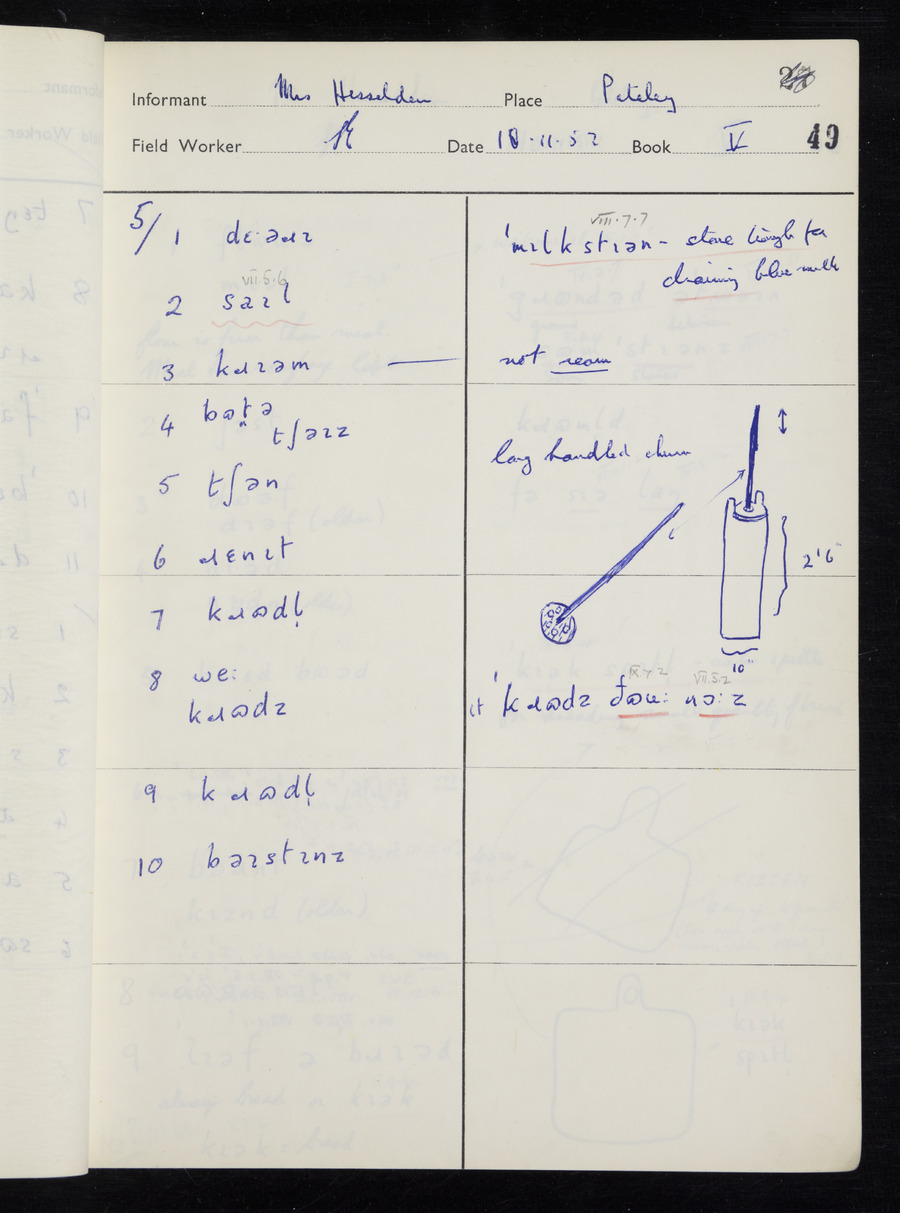 Informant Mrs Hesselden Place Pateley
Field Worker Date 18.11.52 Book V 49
5/ 1 dɛ·əɹɪ
VII.5.6
2 saɪl
3 kɹɪəm
4 bɷt̤ə
tʃəɪz
5 tʃən
6 ɹɛnɪt
7 kɹɷdl̩
8 we:
kɹɷdz
9 kɹɷdl̩
10 bəɪstɪnz
VIII.7.7
ˈmɪlkstɪən - stone trough for
draining blue milk
not ream
long handled churn
2'6"
10"
IX.4.2 VII.5.2
it ˈkɹɷdz